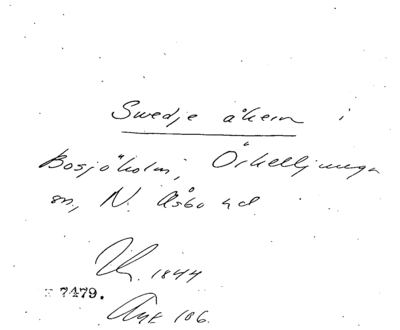 Swedje åkern i
Bosjöholm, Örkelljunga
sn, N. Åsbo hd
1844
7479.
Akt 106.